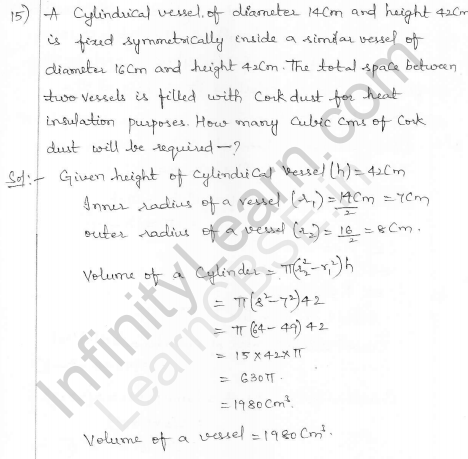 15) A Cylindrical vessel of diameter 14Cm and height 42Cm
is fixed symmetrically inside a similar vessel of
diameter 16Cm and height 42Cm. The total space between
two vessels is filled with Cork dust for heat
insulation purposes. How many Cubic Cms of Cork
dust will be required —?
Sol:- Given height of Cylindrical Vessel (h) = 42Cm
Inner radius of a vessel (r₁) = 14Cm/2 = 7Cm
outer radius of a vessel (r₂) = 16/2 = 8Cm.
Volume of a Cylinder = π(r₂² - r₁²)h
= π(8² - 7²)42
= π(64 - 49)42
= 15 × 42 × π
= 630π.
= 1980Cm³.
Volume of a vessel = 1980Cm³.
InfinityLearn.com
LearnCBSE.in